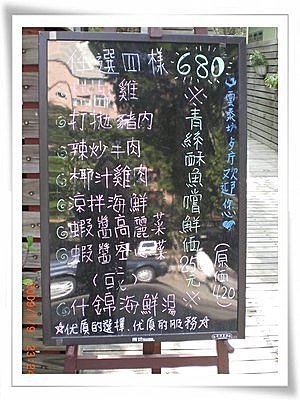 任選四樣 680
雞
打拋豬肉
辣炒牛肉
椰汁雞肉
涼拌海鮮
蝦醬高麗菜
蝦醬空心菜
(或)
什錦海鮮湯
※青絲酥魚嚐鮮價250元※
(原價420)
雲泰坊夕厅欢迎您
☆优质的選擇.优质的服務☆